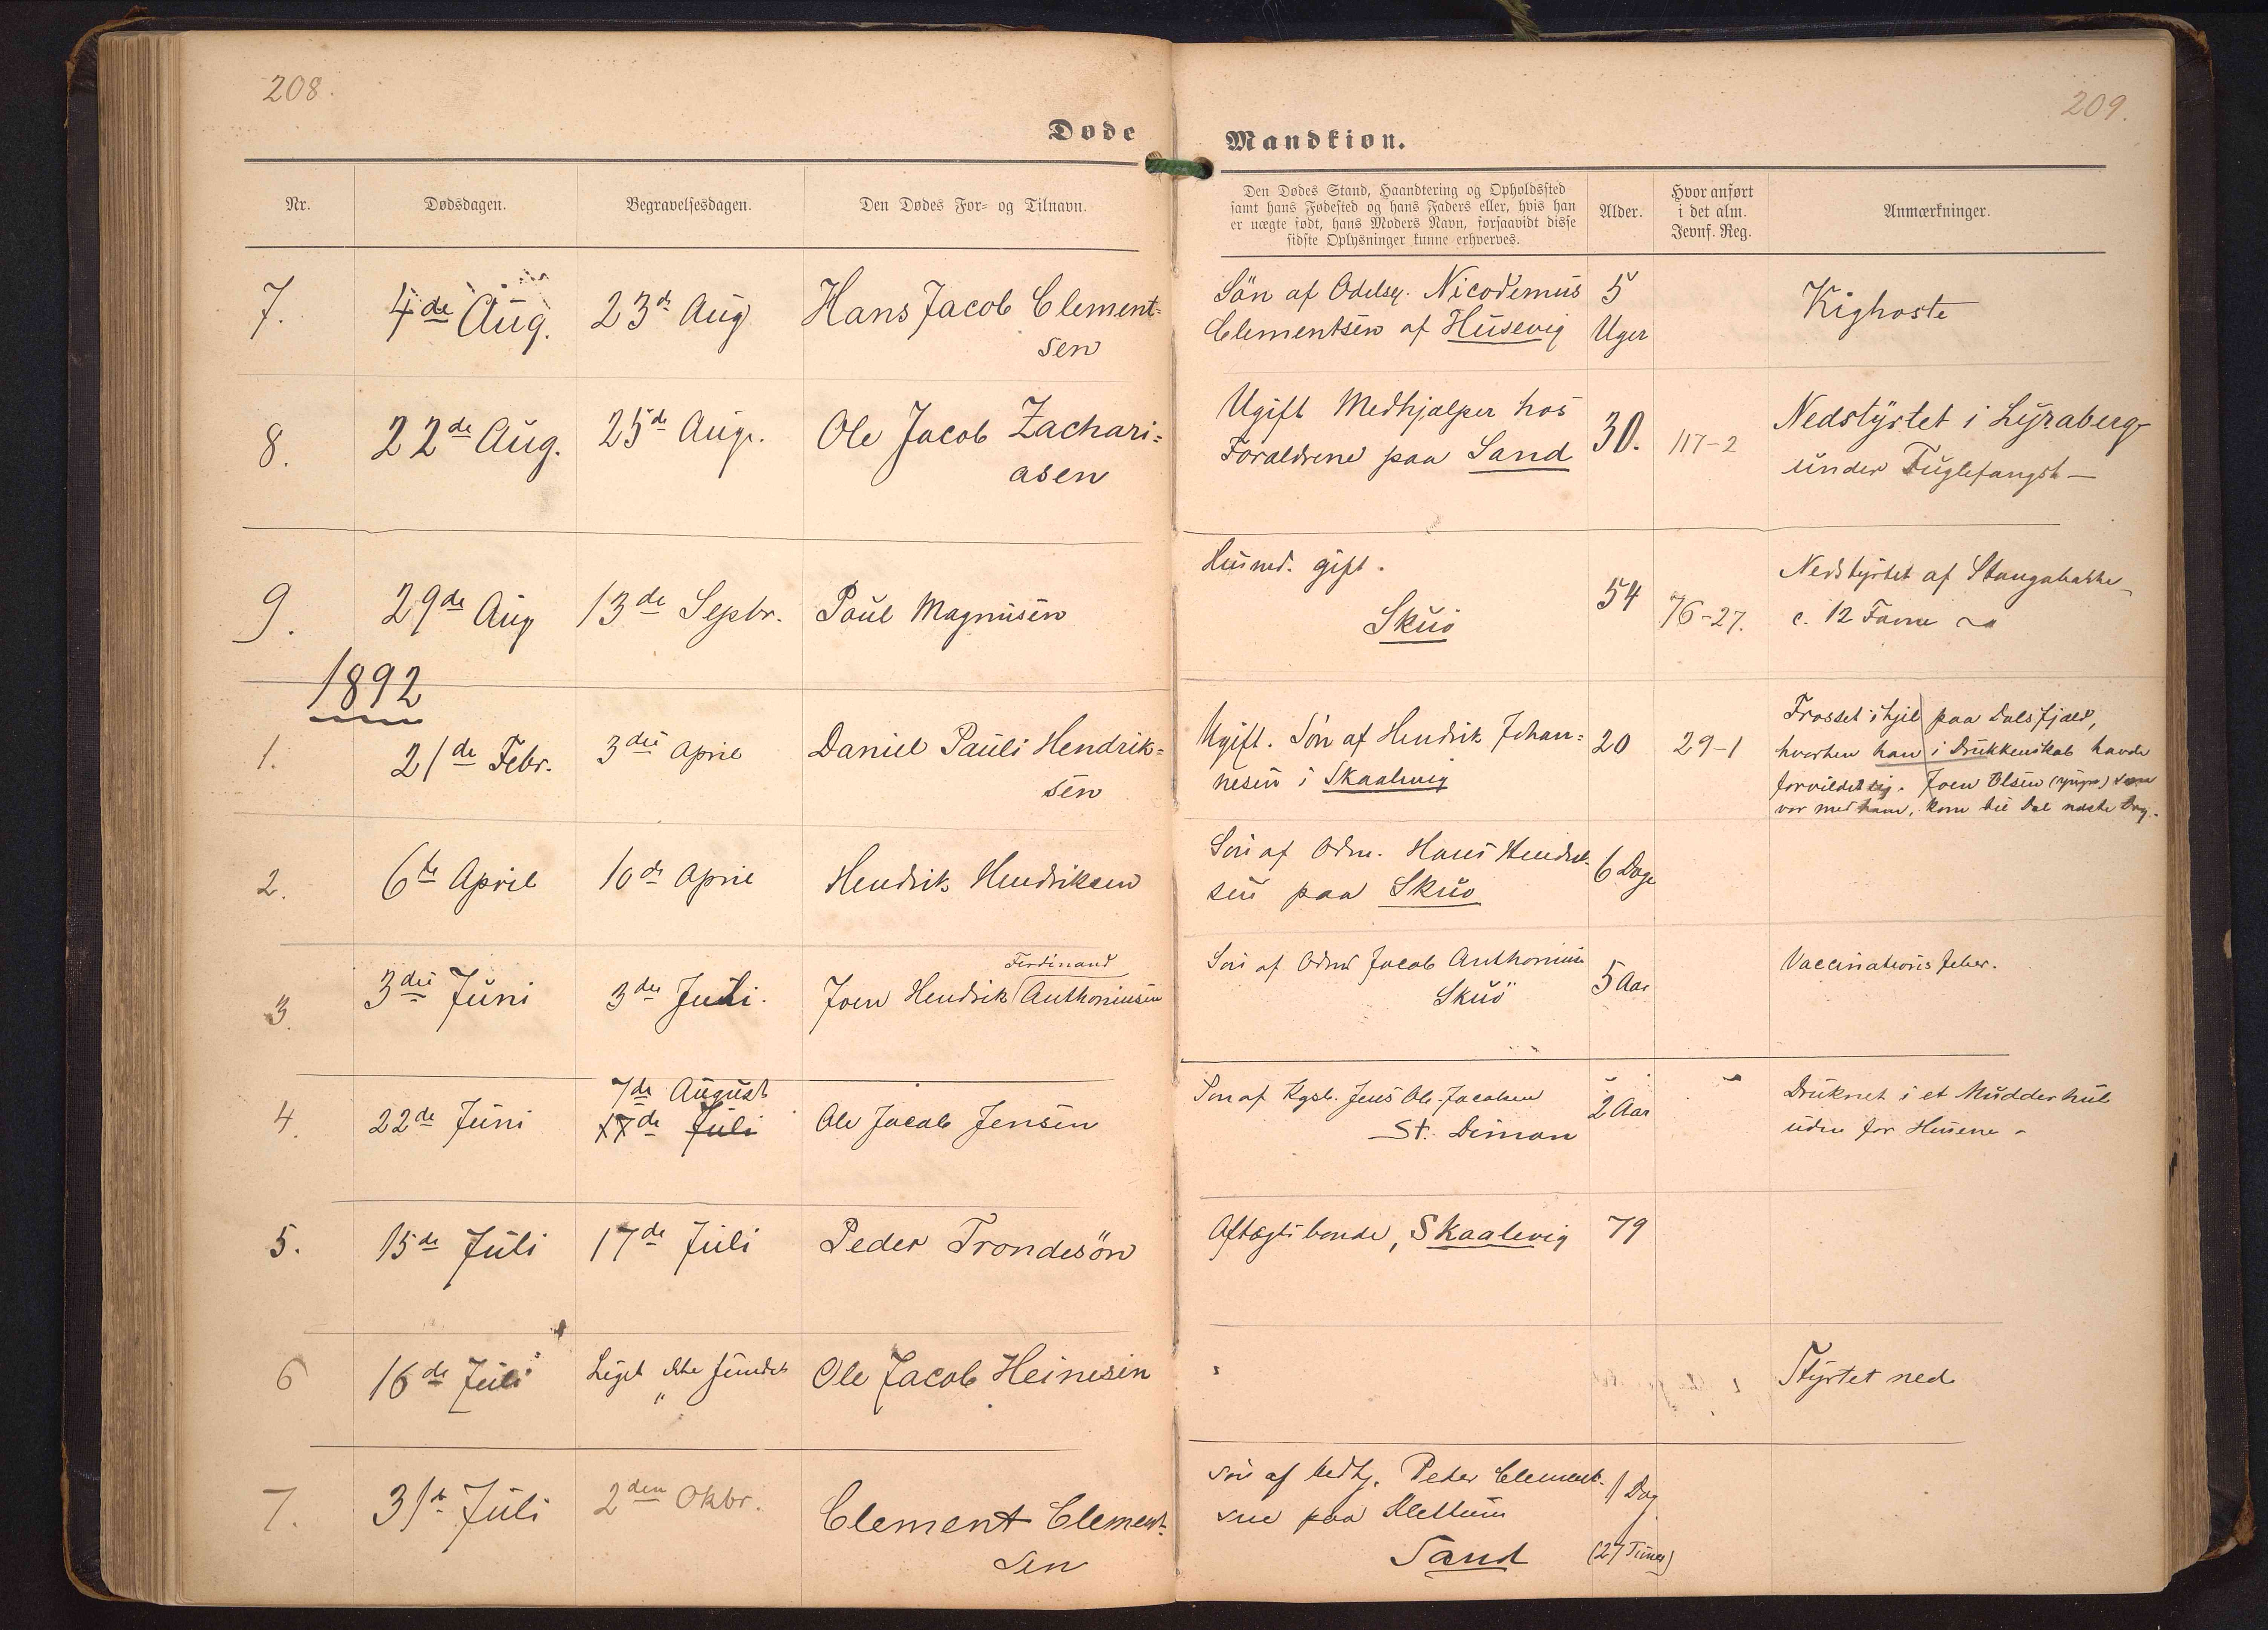 208.
209.
Døde
Mandkiøn.
Nr.
Dødsdagen.
Begravelsesdagen.
Den Dødes For- og Tilnavn.
Den Dødes Stand, Haandtering og Opholdssted
samt hans Fødested og hans Faders eller, hvis han
er uægte født, hans Moders Navn, forsaavidt disse
sidste Oplysninger kunne erhverves.
Alder.
Hvor anført
i det alm.
Jevnf. Reg.
Anmærkninger.
7.
4de Aug.
23de Aug
Hans Jacob Clement=
sen
Sön af Odelsg. Nicodemus
Clementsen af Husevig
5
Uger
Kighoste
8.
22de Aug.
25de Aug.
Ole Jacob Zachari=
asen
Ugift Medhjælper hos
Forældrene paa Sand
30.
117-2
Nedstyrtet i Lyraberg
under Fuglefangst —
9.
29de Aug
13de Septbr.
Poul Magnusen
Husmd. gift.
Skuö
54
76-27.
Nedstyrtet af
c. 12 Favne
1892
1.
21de Febr.
3die April
Daniel Pauli Hendrik=
sen
Ugift. Sön af Hendrik Johan=
nesen i Skaalevig
20
29-1
Frosset ihjel paa Dalsfjæld,
hvorhen han i Drukkenskab havde
forvildet sig. Joen Olsen som
var med ham, kom til Dal næste Dag.
2.
6te April
10de April
Hendrik Hendriksen
Sön af Odm. Hans Hendrik-
sen paa Skuö
6 Dage
3.
3die Juni
3die Juli.
Ferdinand
Joen Hendrik Anthoniusen
Sön af Odmd Jacob Anthoniusen
Skuö
5 Aar
Vaccinations feber.
4.
22de Juni
7de August
17de Juli
Ole Jacob Jensen
Sön af Kgsb. Jens Ol. Jacobsen
St. Dimon
2 Aar
Druknet i et Mudderhul
uden for Husene -
5.
15de Juli
17de Juli
Peder Trondesön
Aftægtsbonde, Skaalevig
79
6
16de Juli
Liget ikke fundet
"
Ole Jacob Heinesen
Styrtet ned
7.
31te Juli
2den Okbr.
Clement Clement-
sen
Sön af Medhj. Peter Clement-
sen paa Klettum
Sand
1 Dag
(27 Timer)